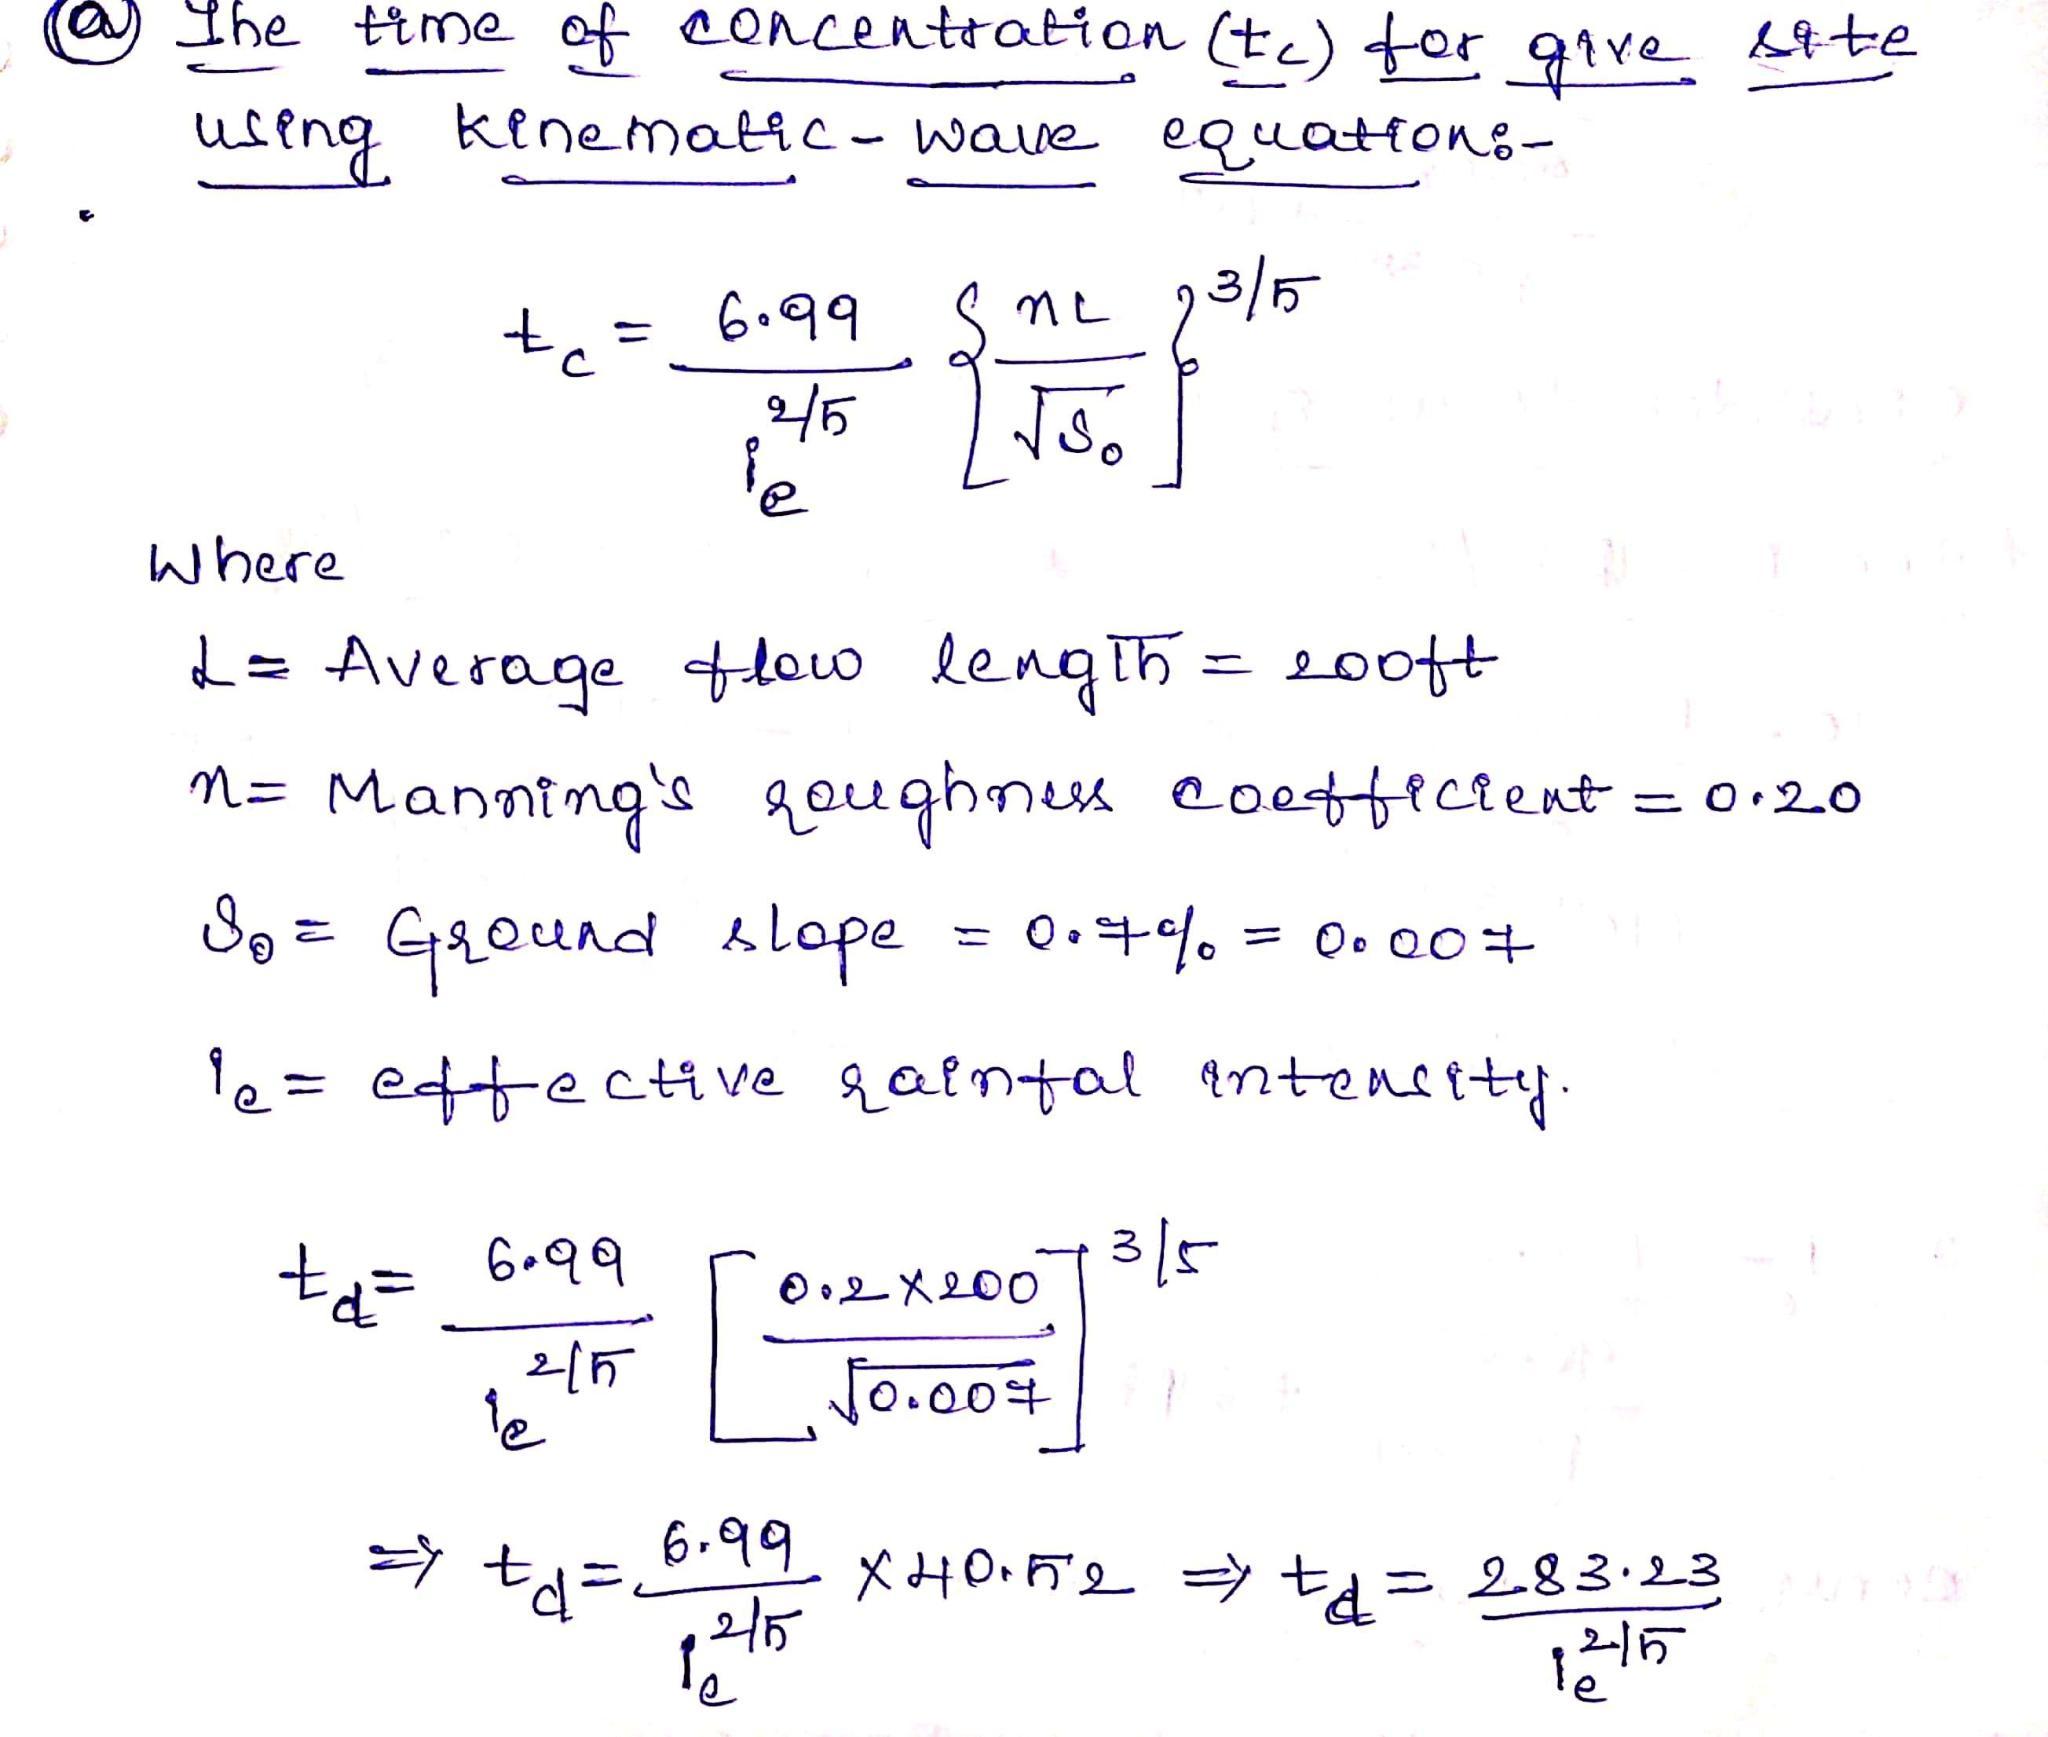 (a) The time of concentration (tc) for give site
using kinematic-wave equation:-
tc = 6.99/ie^2/5 {nL/√So}^3/5
Where
L = Average flow length = 200ft
n = Manning's roughness coefficient = 0.20
So = Ground slope = 0.7% = 0.007
ie = effective rainfal intensity.
td = 6.99/ie^2/5 [0.2×200/√0.007]^3/5
⇒ td = 6.99/ie^2/5 × 40.52 ⇒ td = 283.23/ie^2/5